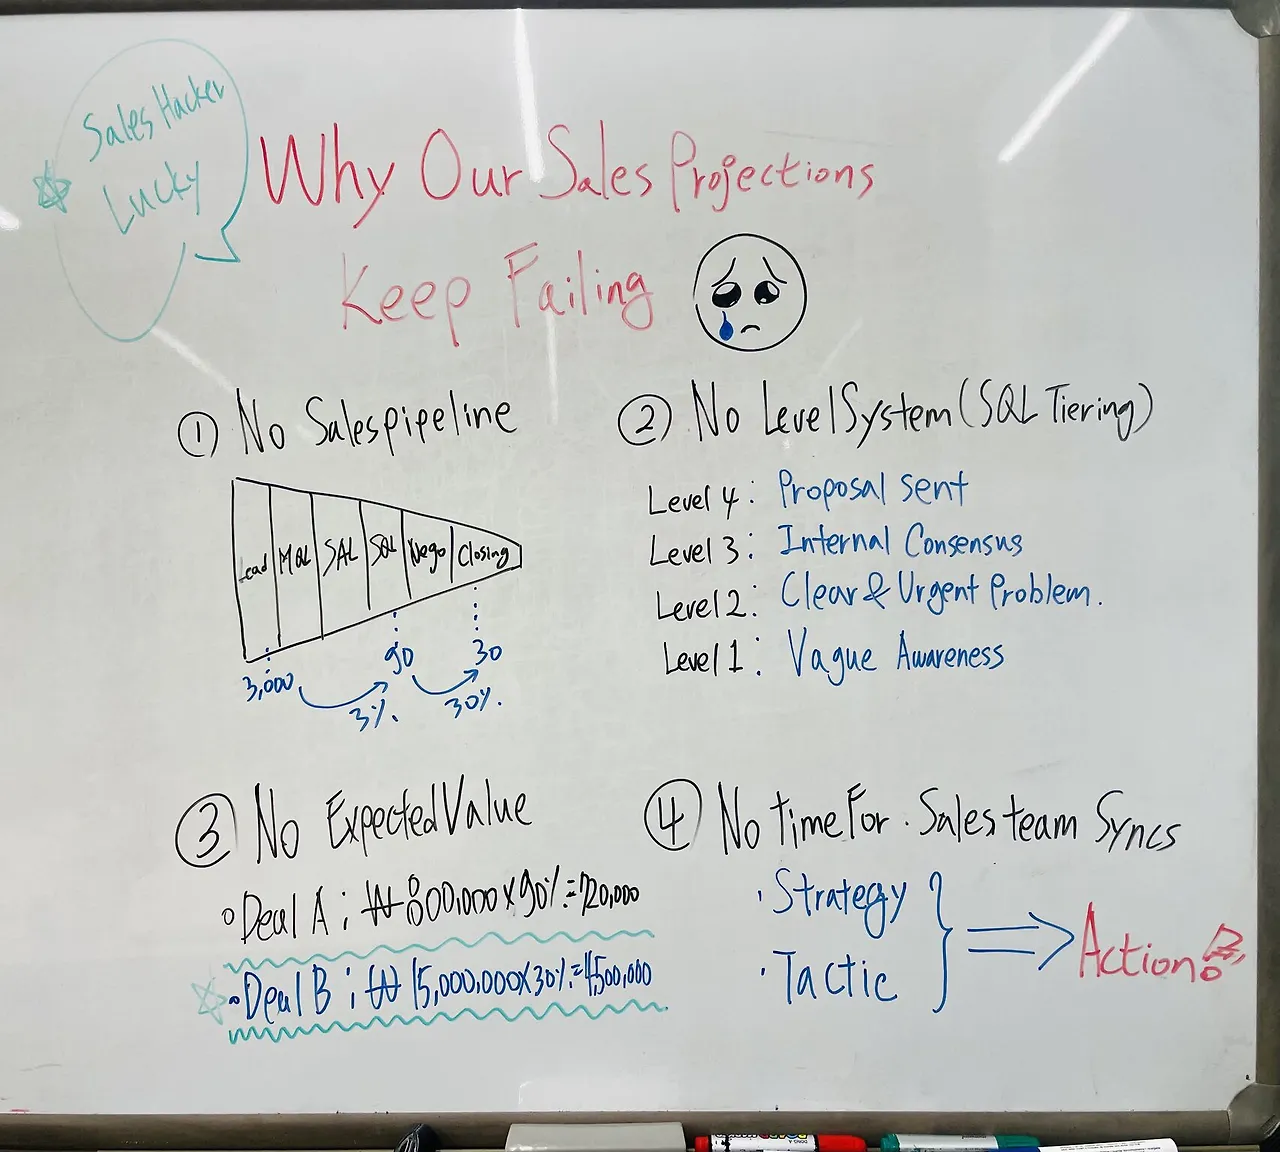 Sales Hacker
Lucky
Why Our Sales Projections
Keep Failing
① No Salespipeline
Lead MQL SAL SQL Nego Closing
3,000 90 30
3% 30%
② No Level System (SQL Tiering)
Level 4: Proposal sent
Level 3: Internal Consensus
Level 2: Clear & Urgent Problem.
Level 1: Vague Awareness
③ No Expected Value
Deal A ; ₩800,000×90%=720,000
Deal B ; ₩15,000,000×30%=4,500,000
④ No time For. Sales team Syncs
· Strategy
· Tactic
Action!